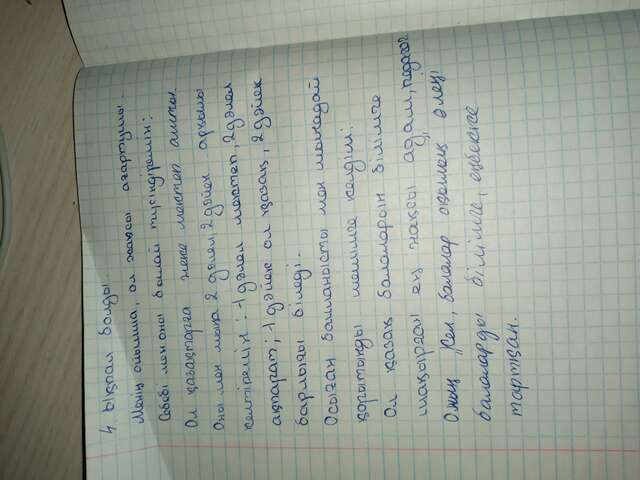 4. Ықпал болды.
Менің ойымша, ол жақсы ағартушы.
Себебі мен оны былай түсіндіремін:
Ол қазақтарға жеке мектеп ашты.
Оны мен мына 2 дәлел 2 дәйек арқылы
келтіремін: -1 дәлел мектеп, 2 дәлел
ақпарат; -1 дәйек ол қазақ, 2 дәйек
барлығы біледі.
Осыған байланысты мен мынадай
қорытынды шешімге келдім:
Ол қазақ балаларын білімге
шақырған ең жақсы адам, педагог
Оның Кел, балалар оқылық өлеңі
балаларды білімге, еңбекке
тартқан.